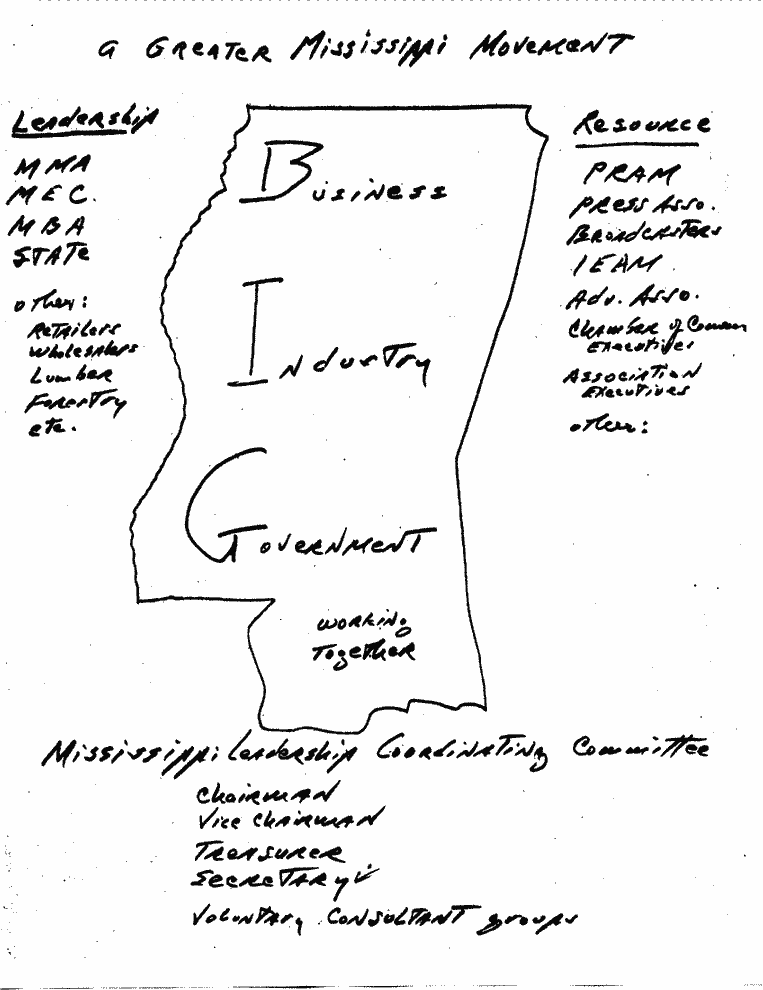 a Greater Mississippi Movement
Leadership
MMA
MEC.
MBA
STATE
other:
Retailers
Wholesalers
Lumber
Forestry
etc.
Business
Industry
Government
working
Together
Resource
PRAM
Press Asso.
Broadcasters
IEAM
Adv. Asso.
Chamber of Comm
Executives
Association
Executives
other:
Mississippi Leadership Coordinating Committee
Chairman
Vice Chairman
Treasurer
Secretary ✓
Voluntary Consultant groups